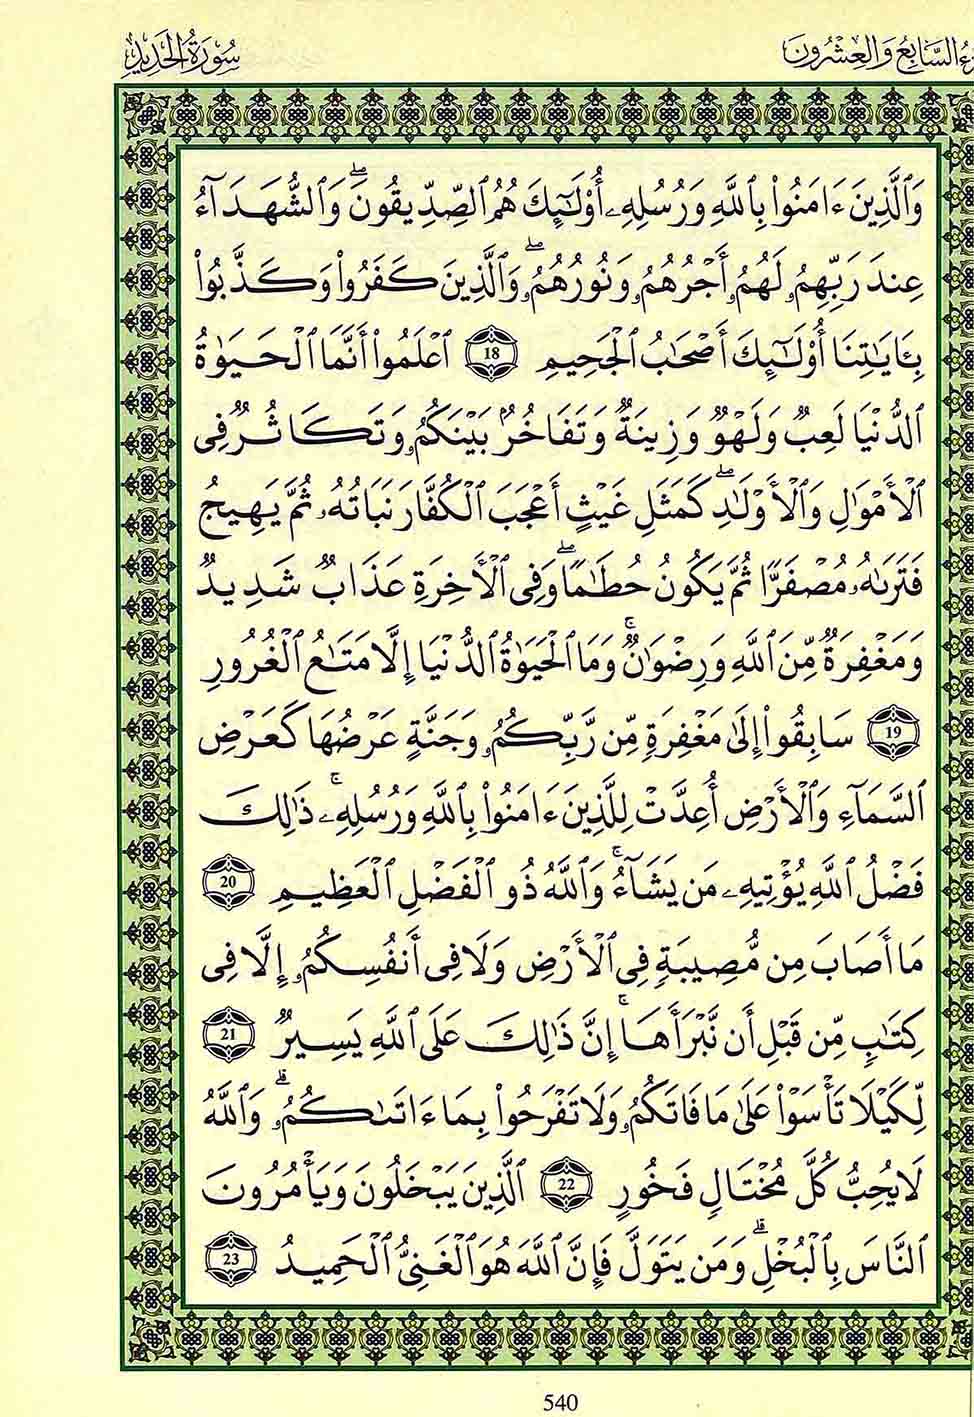 الجزء السابع والعشرون
سورة الحديد
وَٱلَّذِينَ ءَامَنُوا۟ بِٱللَّهِ وَرُسُلِهِۦ أُو۟لَٰٓئِكَ هُمُ ٱلصِّدِّيقُونَ ۖ وَٱلشُّهَدَآءُ
عِندَ رَبِّهِمُۥ لَهُمُۥ أَجْرُهُمُۥ وَنُورُهُمُۥ ۖ وَٱلَّذِينَ كَفَرُوا۟ وَكَذَّبُوا۟
بِـَٔايَٰتِنَا أُو۟لَٰٓئِكَ أَصْحَٰبُ ٱلْجَحِيمِ 18 ٱعْلَمُوا۟ أَنَّمَا ٱلْحَيَوٰةُ
ٱلدُّنْيَا لَعِبٌ وَلَهْوٌ وَزِينَةٌ وَتَفَاخُرٌ بَيْنَكُمُۥ وَتَكَاثُرٌ فِى
ٱلْأَمْوَٰلِ وَٱلْأَوْلَٰدِ ۖ كَمَثَلِ غَيْثٍ أَعْجَبَ ٱلْكُفَّارَ نَبَاتُهُۥ ثُمَّ يَهِيجُ
فَتَرَىٰهُۥ مُصْفَرًّا ثُمَّ يَكُونُ حُطَٰمًا ۖ وَفِى ٱلْأَخِرَةِ عَذَابٌ شَدِيدٌ
وَمَغْفِرَةٌ مِّنَ ٱللَّهِ وَرِضْوَٰنٌ ۚ وَمَا ٱلْحَيَوٰةُ ٱلدُّنْيَا إِلَّا مَتَٰعُ ٱلْغُرُورِ
19 سَابِقُوا۟ إِلَىٰ مَغْفِرَةٍ مِّن رَّبِّكُمُۥ وَجَنَّةٍ عَرْضُهَا كَعَرْضِ
ٱلسَّمَآءِ وَٱلْأَرْضِ أُعِدَّتْ لِلَّذِينَ ءَامَنُوا۟ بِٱللَّهِ وَرُسُلِهِۦ ۚ ذَٰلِكَ
فَضْلُ ٱللَّهِ يُؤْتِيهِۦ مَن يَشَآءُ ۚ وَٱللَّهُ ذُو ٱلْفَضْلِ ٱلْعَظِيمِ 20
مَا أَصَابَ مِن مُّصِيبَةٍ فِى ٱلْأَرْضِ وَلَا فِى أَنفُسِكُمُۥ إِلَّا فِى
كِتَٰبٍ مِّن قَبْلِ أَن نَّبْرَأَهَا ۚ إِنَّ ذَٰلِكَ عَلَى ٱللَّهِ يَسِيرٌ 21
لِّكَيْلَا تَأْسَوْا۟ عَلَىٰ مَا فَاتَكُمُۥ وَلَا تَفْرَحُوا۟ بِمَا ءَاتَىٰكُمُۥ ۗ وَٱللَّهُ
لَا يُحِبُّ كُلَّ مُخْتَالٍ فَخُورٍ 22 ٱلَّذِينَ يَبْخَلُونَ وَيَأْمُرُونَ
ٱلنَّاسَ بِٱلْبُخْلِ ۗ وَمَن يَتَوَلَّ فَإِنَّ ٱللَّهَ هُوَ ٱلْغَنِىُّ ٱلْحَمِيدُ 23
540